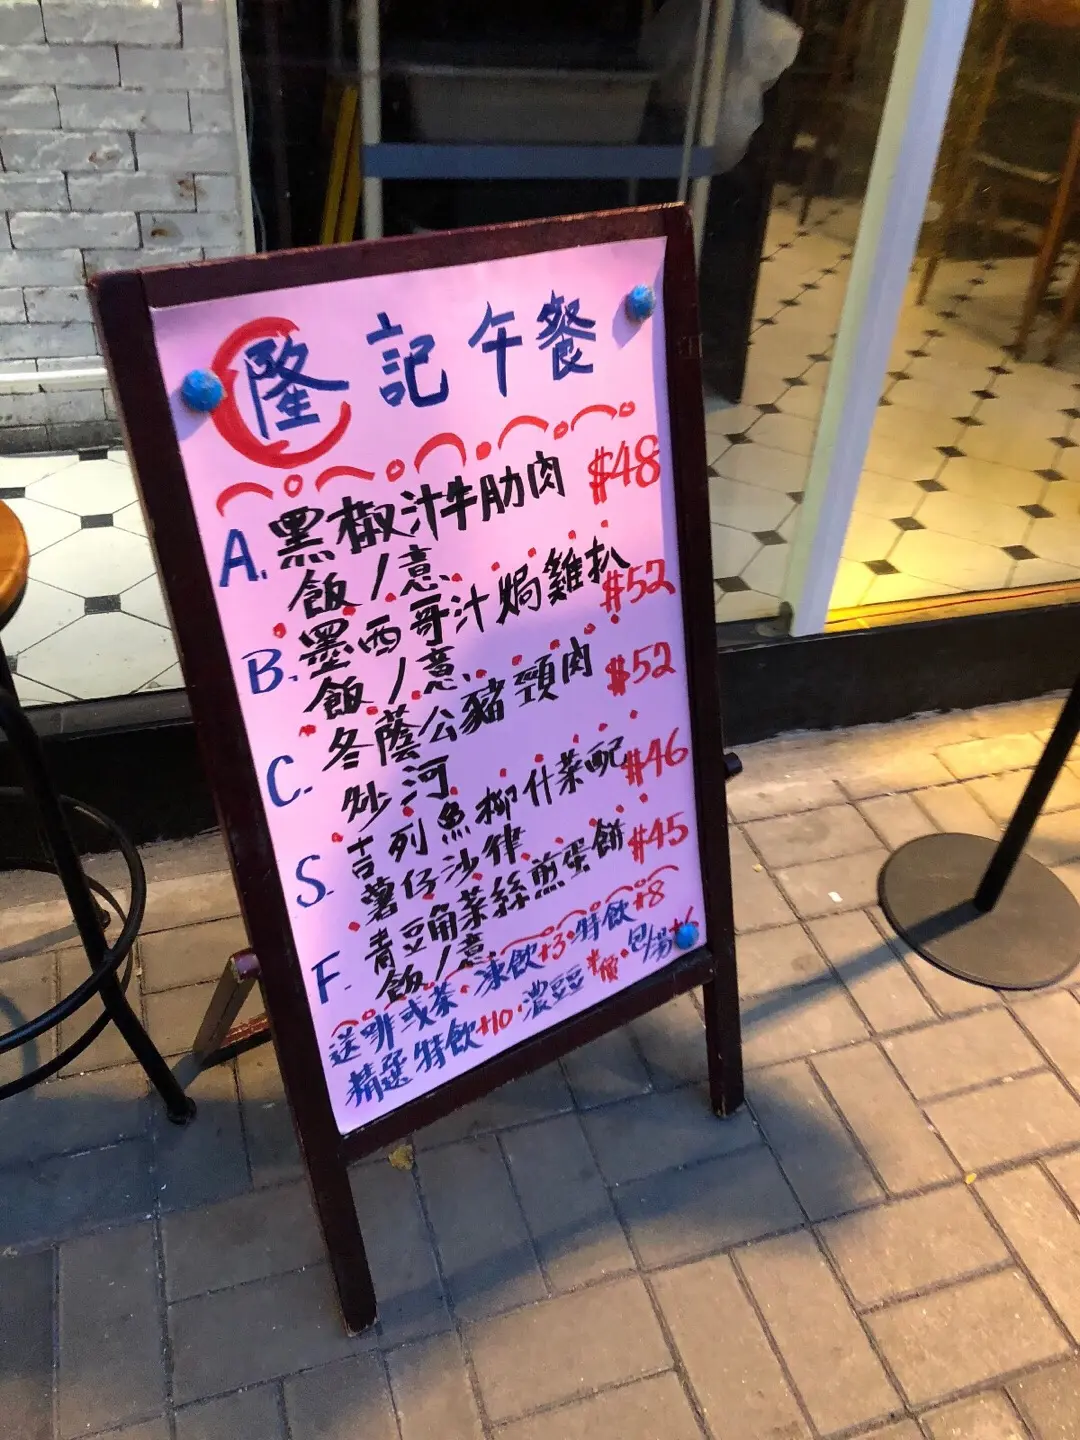 隆記午餐
A. 黑椒汁牛肋肉 $48
飯/意
B. 墨西哥汁焗雞扒 $52
飯/意
C. 冬蔭公豬頸肉 $52
炒河
S. 吉列魚柳什菜配 $46
薯仔沙律
F. 青豆角菜絲煎蛋餅 $45
飯/意
送啡或茶・凍飲+3・特飲+8
精選特飲+10・濃豆豆